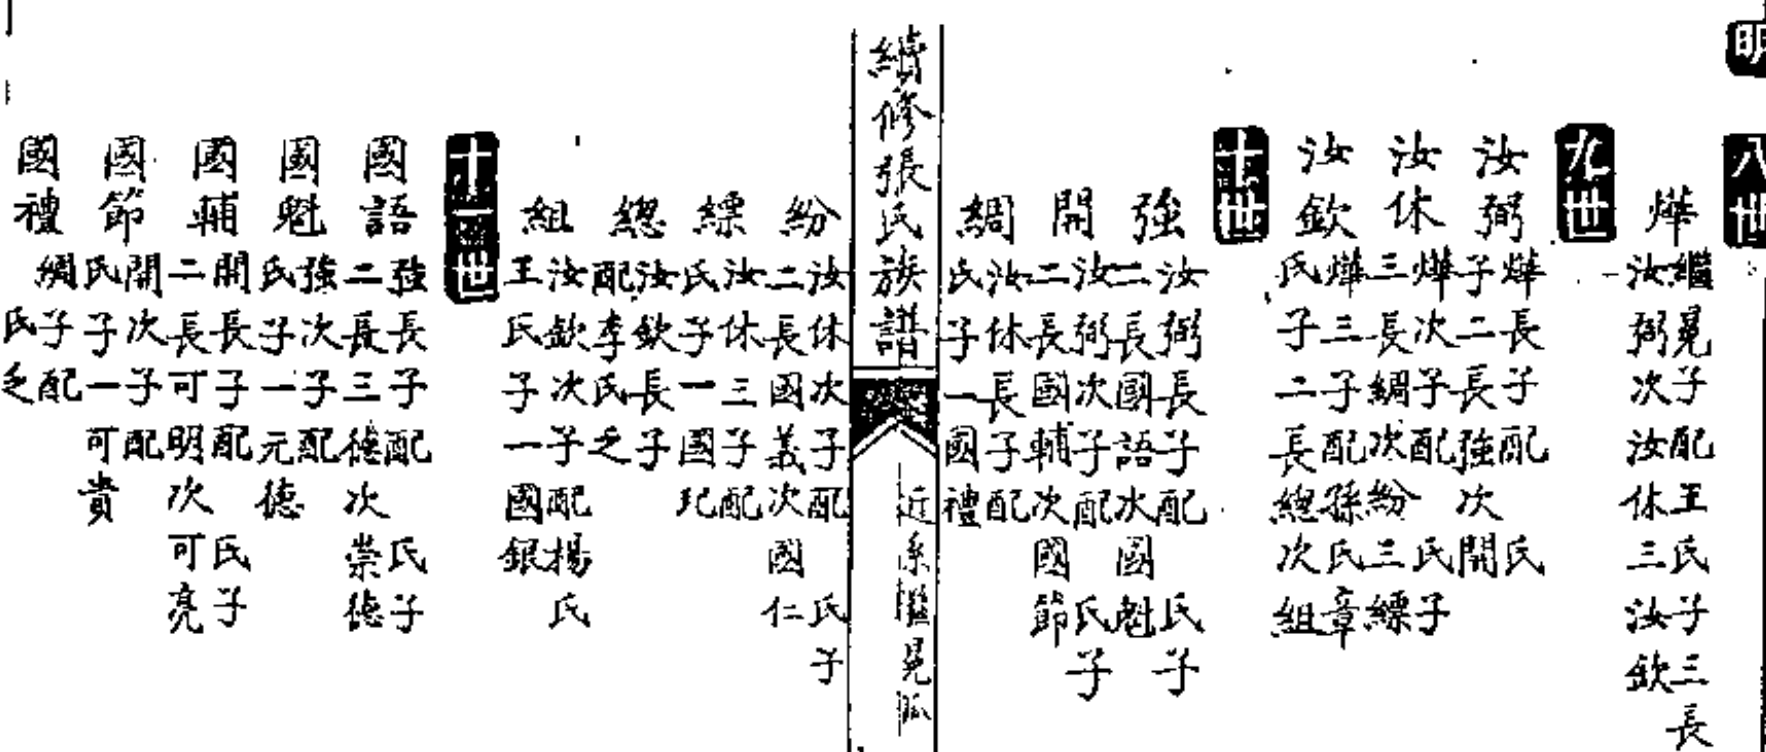 明
八世
燁
繼晃子配王氏子三長
汝弼次汝休三汝欽
九世
汝弼
燁長子配氏
子二長強次開
汝休
燁次子配氏子
三長綢次紛三縹
汝欽
燁三子配孫氏章
氏子二長總次組
十世
強
汝弼長子配氏子
二長國語次國魁
開
汝弼次子配氏子
二長國輔次國節
綢
汝休長子配
氏子一國禮
續修張氏族譜
近系繼晃派
紛
汝休次子配氏子
二長國義次國仁
縹
汝休三子配
氏子一國玘
總
汝欽長子
配李氏乏
組
汝欽次子配楊氏
王氏子一國銀
十一世
國語
強長子配氏子
二長三德次崇德
國魁
強次子配
氏子一元德
國輔
開長子配氏子
二長可明次可亮
國節
開次子配
氏子一可貴
國禮
綢子配
氏乏